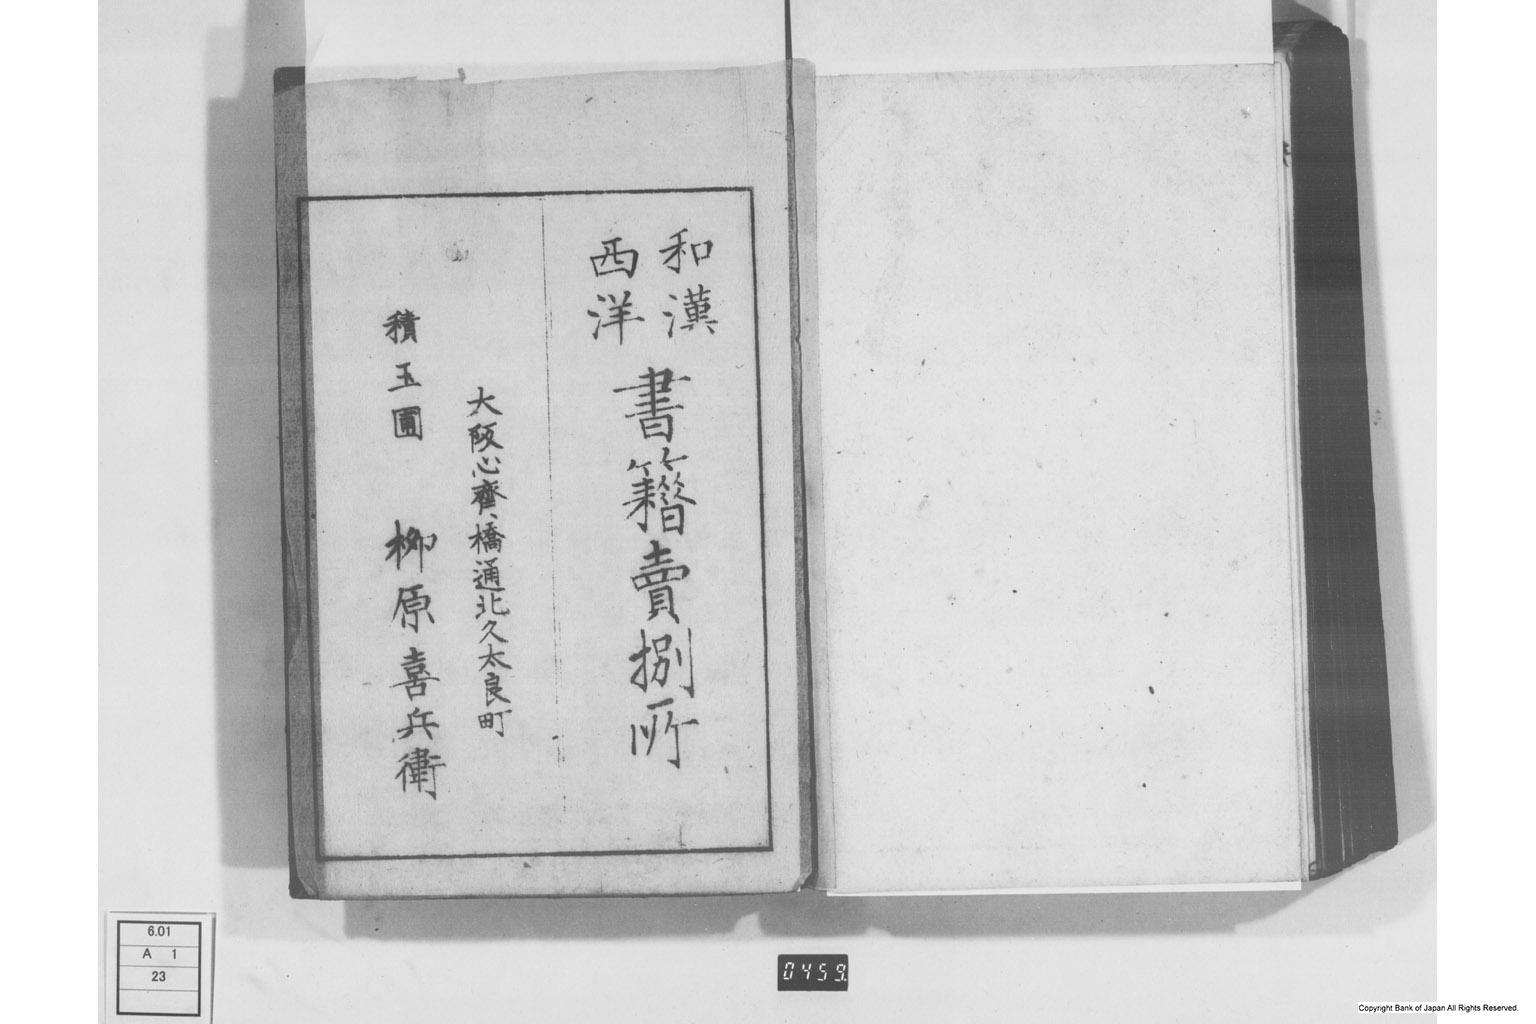 和漢
西洋
書籍賣捌所
大阪心齊橋通北久太良町
積玉圃 柳原喜兵衛
6.01
A 1
23
0459
Copyright Bank of Japan All Rights Reserved.